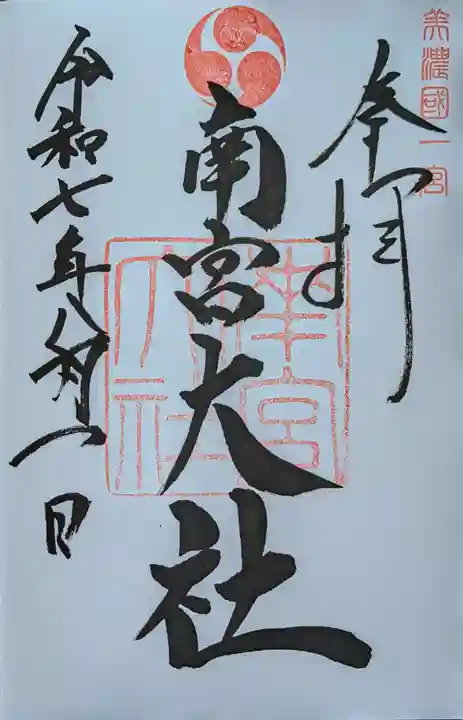 美濃國一宮
奉拝
南宮大社
南宮大社
令和七年八月一日